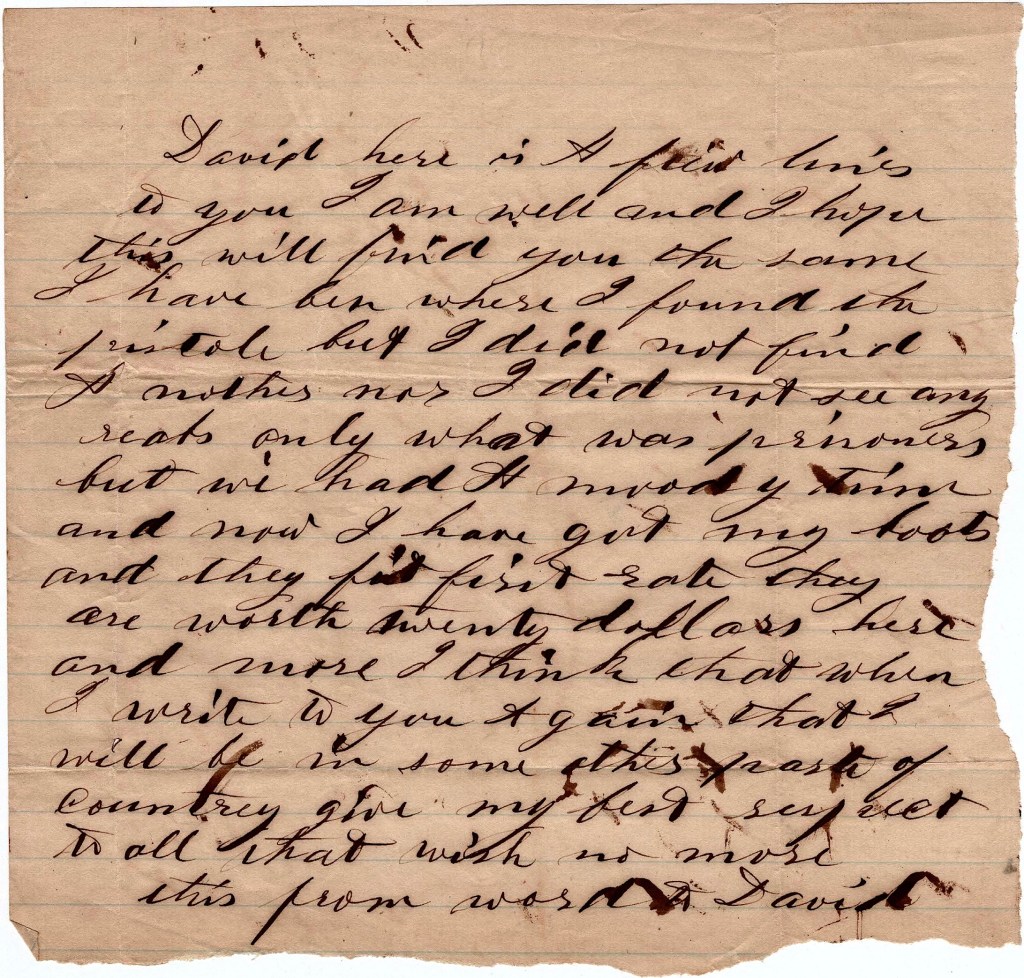 David here is A fiew lines
to you I am well and I hope
this will find you the same
I have ben where I found the
pistole but I did not find
A nother nor I did not see any
rebs only what was prisoners
but we had A mood y time
and now I have got my boots
and they fit first rate they
are worth twenty dollars here
and more I think that when
I write to you A gain that I
will be in some other part of
countrey give my best respect
to all that wish no more
this from word to David